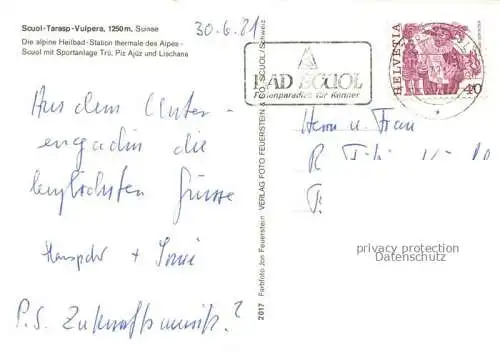 Scuol-Tarasp-Vulpera, 1250 m, Suisse
Die alpine Heilbad-Station thermale des Alpes -
Scuol mit Sportanlage Trü, Piz Ajüz und Lischana
30.6.81
BAD SCUOL
Ferienparadies für Kenner
HELVETIA
40
Aus dem Unter-
engadin die
herzlichsten Grüsse
Hanspeter +
P.S. Zukunftsmusik?
2017 Farbfoto Jon Feuerstein VERLAG FOTO FEUERSTEIN & CO. SCUOL/Schweiz
Herrn u. Frau
R
privacy protection
Datenschutz